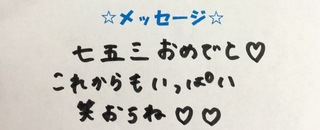 ☆メッセージ☆
七五三おめでと♡
これからもいっぱい
笑おうね♡♡